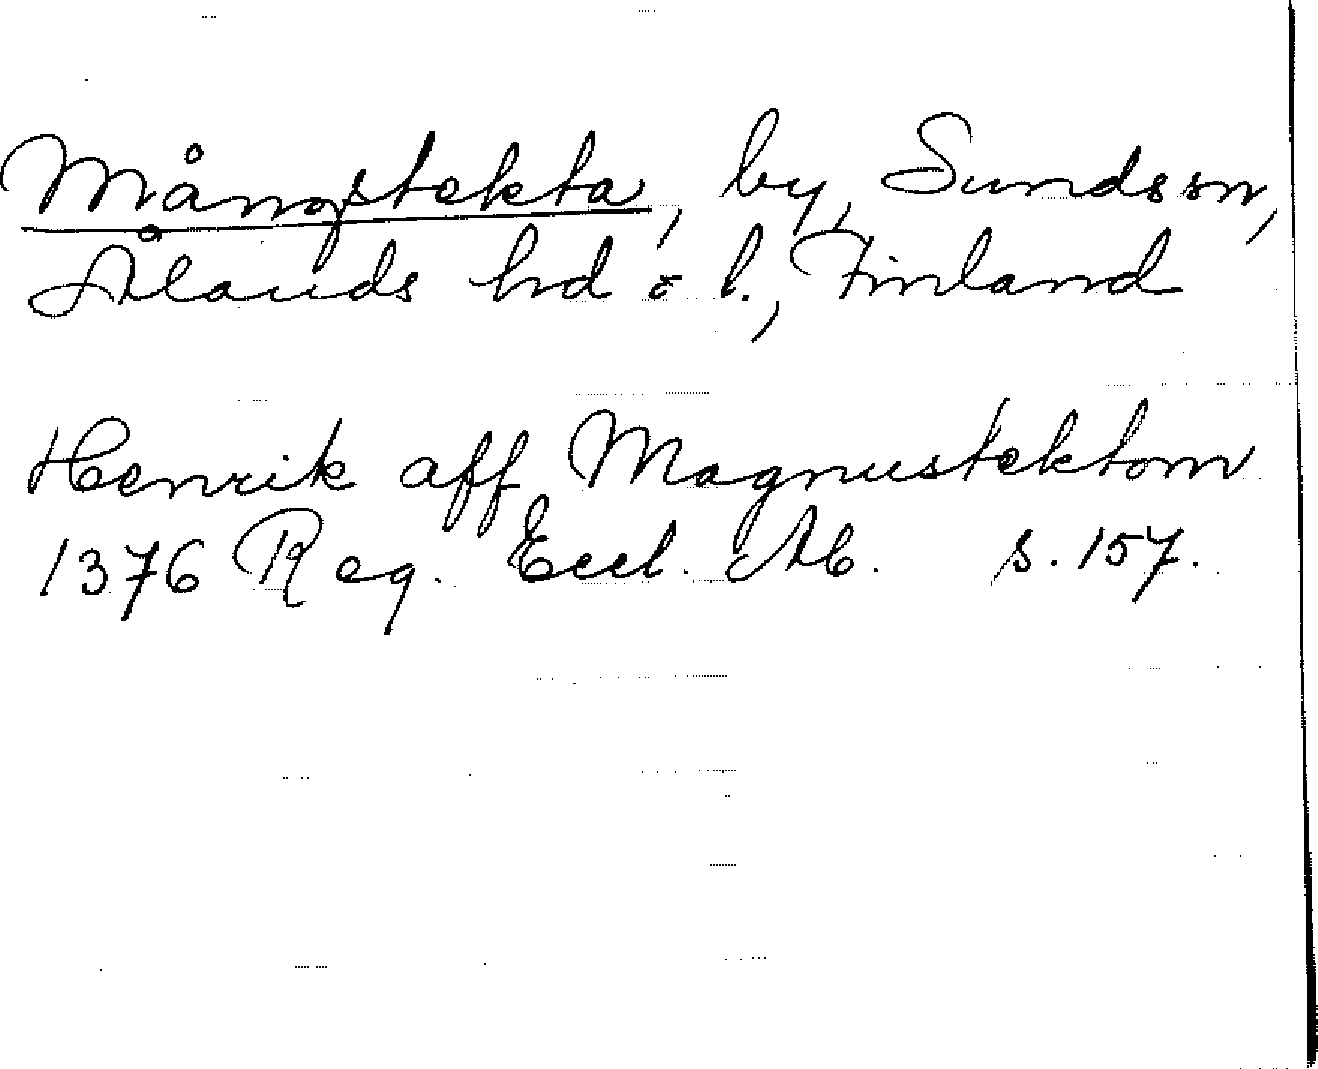 Mångstekta, by, Sunds sn,
Ålands hd o l., Finland
Henrik aff Magnustektom
1376 Reg. Eccl. Ab. s. 157.